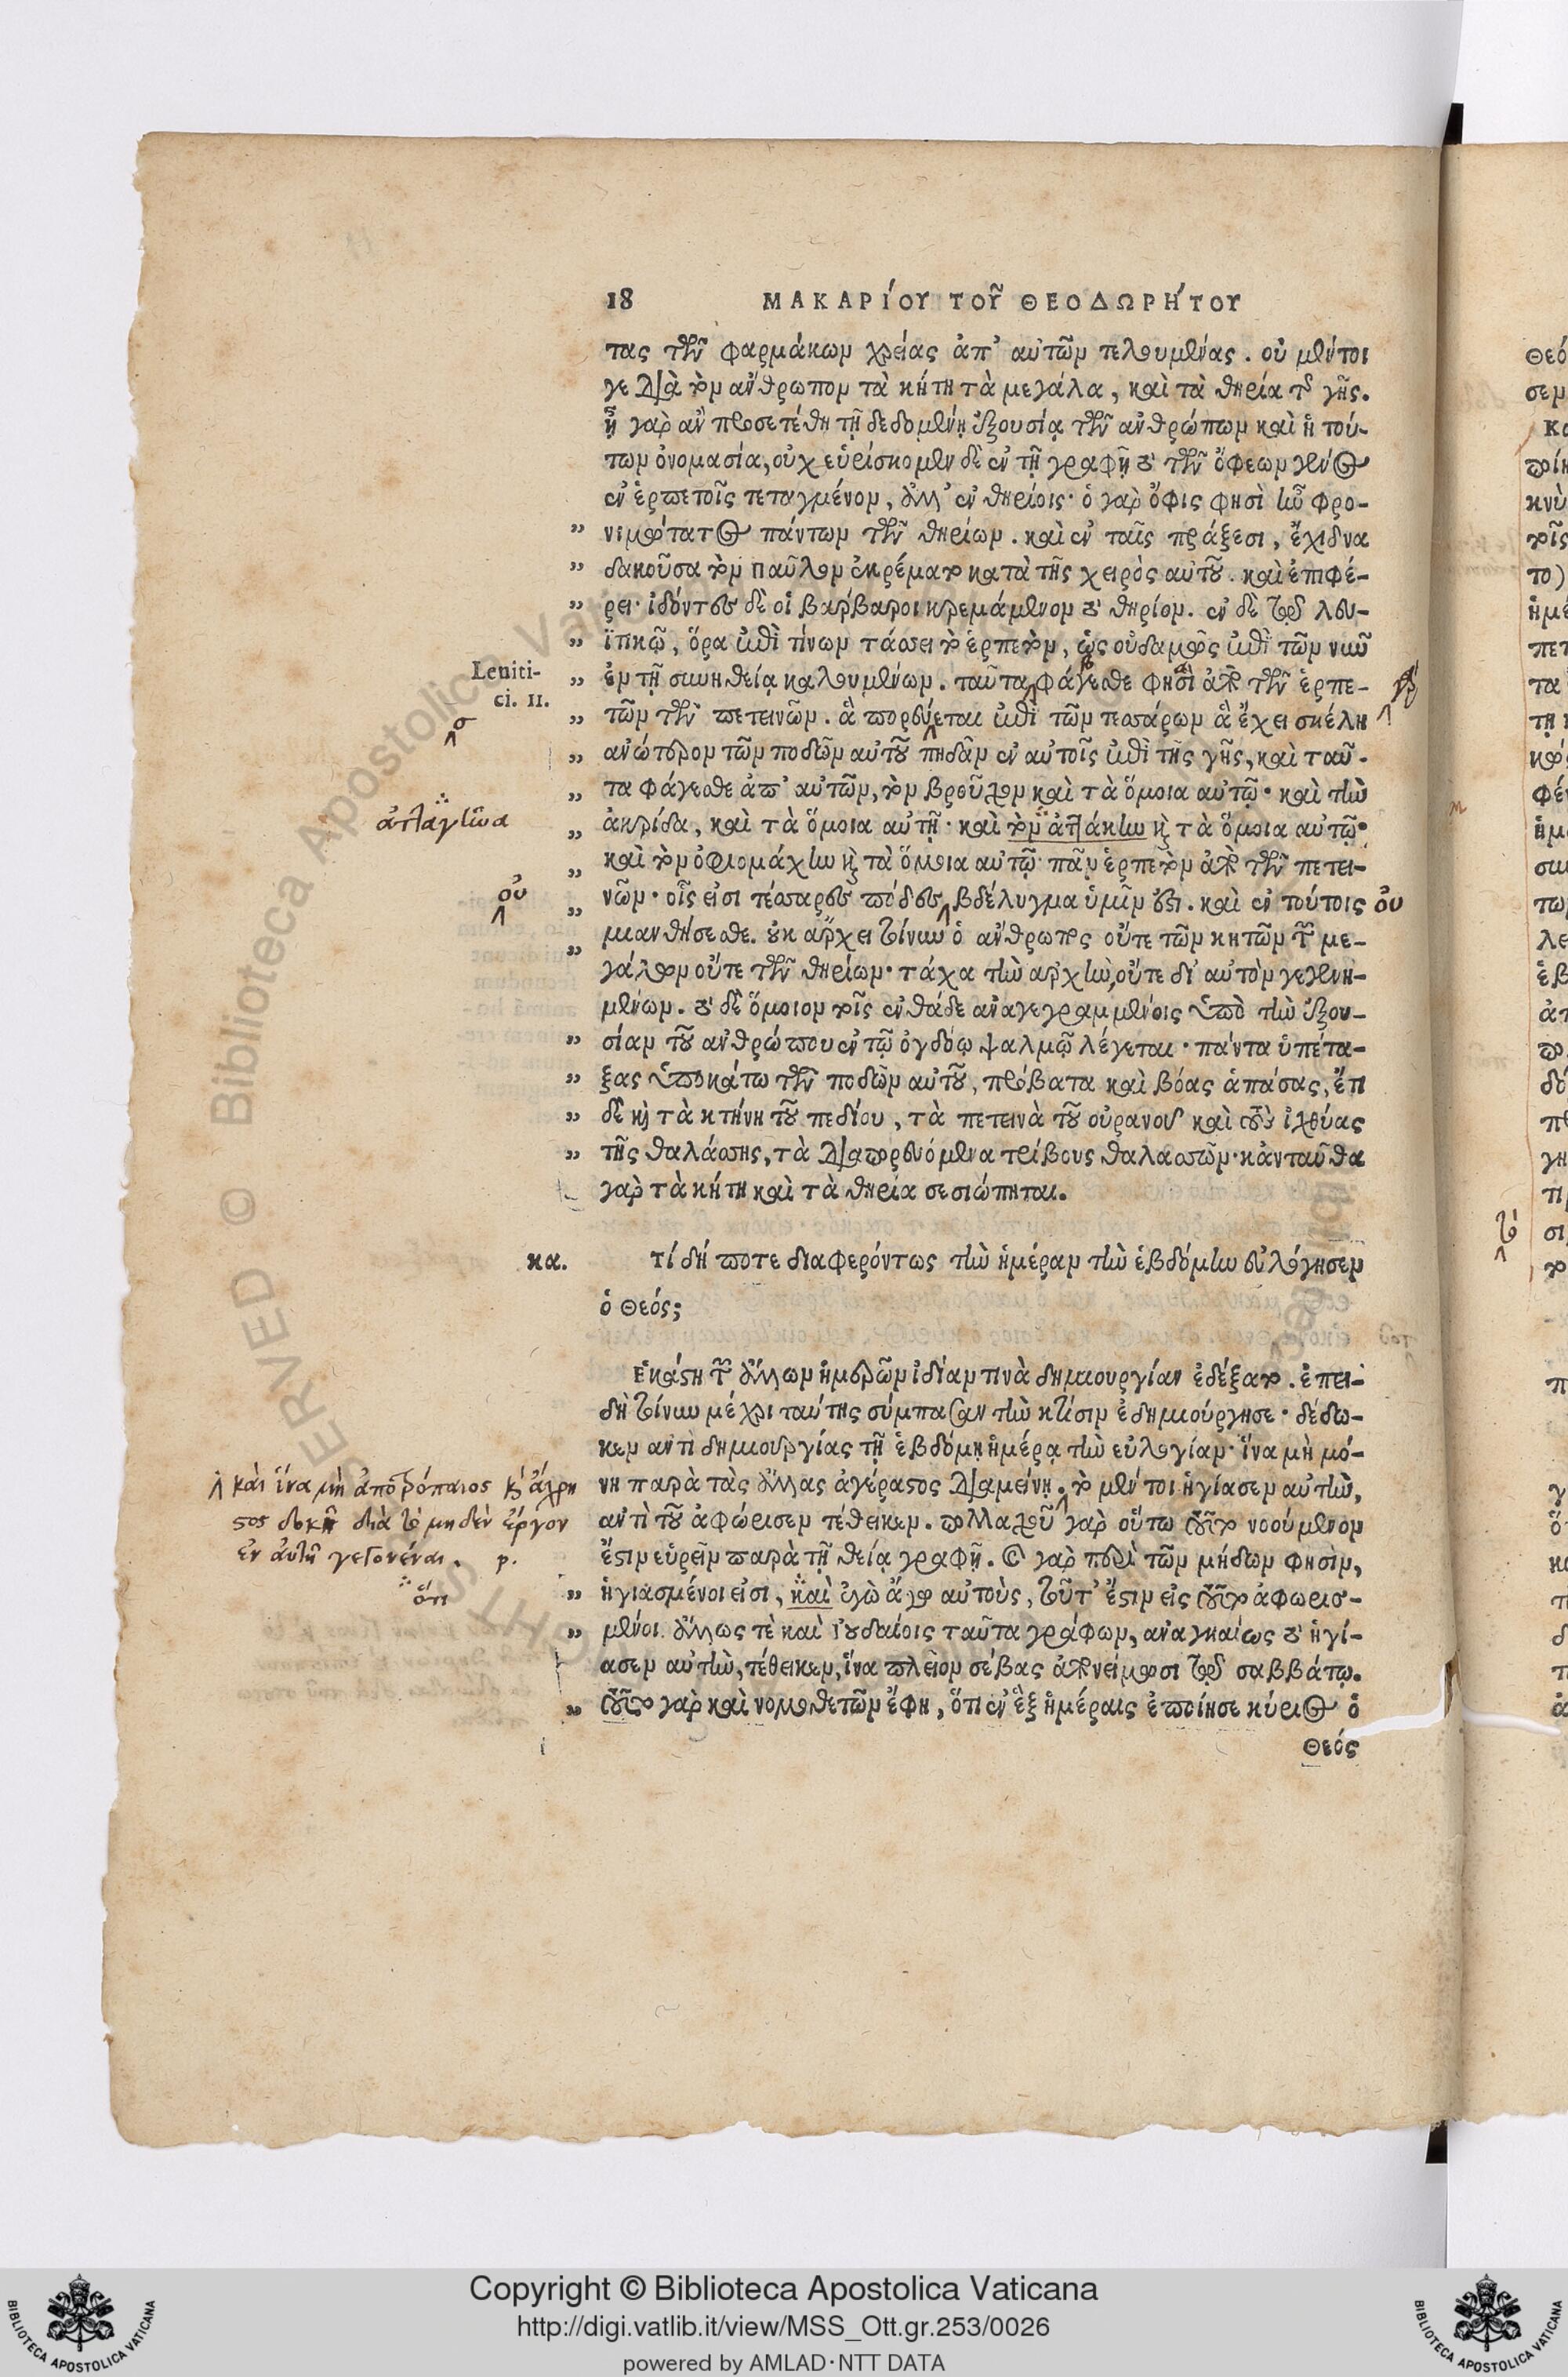 18 ΜΑΚΑΡίΟΥ ΤΟῦ ΘΕΟΔΩΡΉΤΟΥ
τας τῶν φαρμάκων χρείας ἀπ' αὐτῶν τελουμένας. οὐ μέντοι
γε διὰ τὸν ἄνθρωπον τὰ κήτη τὰ μεγάλα, καὶ τὰ θηρία τῆς γῆς.
ἦ γὰρ ἂν προσετέθη τῇ δεδομένῃ ἐξουσίᾳ τῶν ἀνθρώπων καὶ ἡ τού-
των ὀνομασία, οὐχ εὑρίσκομεν δὲ ἐν τῇ γραφῇ τὸ τῶν ὄφεων γένος
ἐν ἑρπετοῖς τεταγμένον, ἀλλ' ἐν θηρίοις· ὁ γὰρ ὄφις φησὶ ἦν φρο-
„ νιμώτατος πάντων τῶν θηρίων. καὶ ἐν ταῖς πράξεσι, ἔχιδνα
„ δακοῦσα τὸν παῦλον ἐκρέματο κατὰ τῆς χειρὸς αὐτοῦ. καὶ ἐπιφέ-
„ ρει· ἰδόντες δὲ οἱ βάρβαροι κρεμάμενον τὸ θηρίον. ἐν δὲ τῷ λευ-
„ ϊτικῷ, ὅρα ἐπὶ τίνων τάσσει τὸ ἑρπετὸν, ὡς οὐδαμῶς ἐπὶ τῶν νῦν
Leuiti-
ci. 11.
„ ἐν τῇ συνηθείᾳ καλουμένων. ταῦτα φάγεσθε φησὶ ἀπὸ τῶν ἑρπε-
„ τῶν τῶν πετεινῶν. ἃ πορεύεται ἐπὶ τῶν τεσσάρων ἃ ἔχει σκέλη
σ
„ ἀνώτερον τῶν ποδῶν αὐτοῦ πηδᾶν ἐν αὐτοῖς ἐπὶ τῆς γῆς, καὶ ταῦ-
„ τα φάγεσθε ἀπ' αὐτῶν, τὸν βροῦχον καὶ τὰ ὅμοια αὐτῷ· καὶ τὴν
„ ἀκρίδα, καὶ τὰ ὅμοια αὐτῇ· καὶ τὸν ἀττάκην καὶ τὰ ὅμοια αὐτῷ·
„ καὶ τὸν ὀφιομάχην καὶ τὰ ὅμοια αὐτῷ· πᾶν ἑρπετὸν ἀπὸ τῶν πετει-
„ νῶν· οἷς εἰσι τέσσαρες πόδες, βδέλυγμα ὑμῖν ἐστι. καὶ ἐν τούτοις οὐ
οὐ
„ μιανθήσεσθε. οὐκ ἄρχει τοίνυν ὁ ἄνθρωπος οὔτε τῶν κητῶν τῶν με-
γάλων οὔτε τῶν θηρίων· τάχα τὴν ἀρχὴν, οὔτε δι' αὐτὸν γεγενη-
μένων. τὸ δὲ ὅμοιον τοῖς ἐνθάδε ἀναγεγραμμένοις ὑπὸ τὴν ἐξου-
„ σίαν τοῦ ἀνθρώπου ἐν τῷ ὀγδόῳ ψαλμῷ λέγεται· πάντα ὑπέτα-
„ ξας ὑποκάτω τῶν ποδῶν αὐτοῦ, πρόβατα καὶ βόας ἁπάσας, ἔτι
„ δὲ καὶ τὰ κτήνη τοῦ πεδίου, τὰ πετεινὰ τοῦ οὐρανοῦ καὶ τοὺς ἰχθύας
„ τῆς θαλάσσης, τὰ διαπορευόμενα τρίβους θαλασσῶν· κἀνταῦθα
γὰρ τὰ κήτη καὶ τὰ θηρία σεσιώπηται.
κα. τί δή ποτε διαφερόντως τὴν ἡμέραν τὴν ἑβδόμην εὐλόγησεν
ὁ Θεός;
Ἑκάστη τῶν ἄλλων ἡμερῶν ἰδίαν τινὰ δημιουργίαν ἐδέξατο. ἐπει-
δὴ τοίνυν μέχρι ταύτης σύμπασαν τὴν κτίσιν ἐδημιούργησε· δέδω-
κεν ἀντὶ δημιουργίας τῇ ἑβδόμῃ ἡμέρᾳ τὴν εὐλογίαν· ἵνα μὴ μό-
νη παρὰ τὰς ἄλλας ἀγέραστος διαμείνῃ. τὸ μέντοι ἡγίασεν αὐτὴν,
καὶ ἵνα μὴ ἀποτρόπαιος καὶ ἄχρη
στος δοκῇ διὰ τὸ μηδὲν ἔργον
ἐν αὐτῇ γεγονέναι. p.
ἀντὶ τοῦ ἀφώρισεν τέθεικεν. πολλαχοῦ γὰρ οὕτω τοῦτο νοούμενον
ἔστιν εὑρεῖν παρὰ τῇ θείᾳ γραφῇ. καὶ γὰρ περὶ τῶν μήδων φησὶν,
ὅτι
„ ἡγιασμένοι εἰσι, καὶ ἐγὼ ἄγω αὐτοὺς, τοῦτ' ἔστιν εἰς τοῦτο ἀφωρισ-
„ μένοι. ἄλλως τὲ καὶ ἰουδαίοις ταῦτα γράφων, ἀναγκαίως τὸ ἡγί-
ασεν αὐτὴν, τέθεικεν, ἵνα πλεῖον σέβας ἀπονείμωσι τῷ σαββάτῳ.
„ τοῦτο γὰρ καὶ νομοθετῶν ἔφη, ὅτι ἐν ἓξ ἡμέραις ἐποίησε κύριος ὁ
Θεός
Copyright © Biblioteca Apostolica Vaticana
http://digi.vatlib.it/view/MSS_Ott.gr.253/0026
powered by AMLAD·NTT DATA
BIBLIOTECA APOSTOLICA VATICANA
BIBLIOTECA APOSTOLICA VATICANA